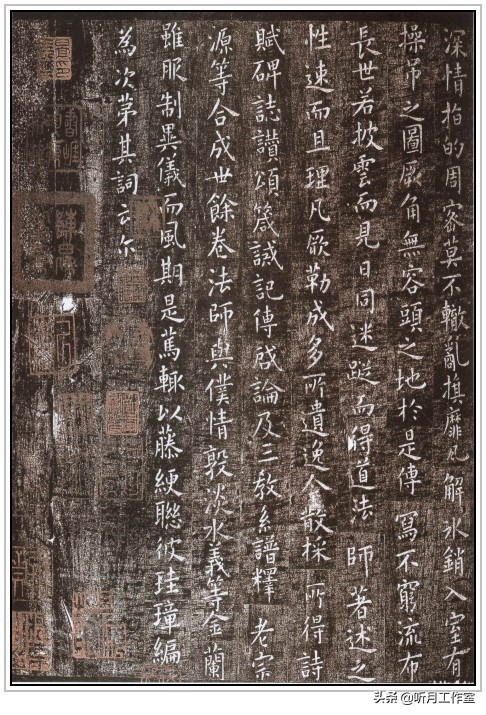 深情指的周密莫不轍亂旗靡瓦解冰銷入室有
操吊之圖厥角無容頭之地於是傳寫不窮流布
長世若披雲而見日同迷蹤而得道法師著述之
性速而且理凡厥勒成多所遺逸今散採所得詩
賦碑誌讚頌箴誡記傳啟論及三教系譜釋老宗
源等合成卅餘卷法師與僕情敦淡水義等金蘭
雖服制異儀而風期是篤輒以藤緶聯彼珪璋編
為次第其詞云尔
头条 @听月工作室